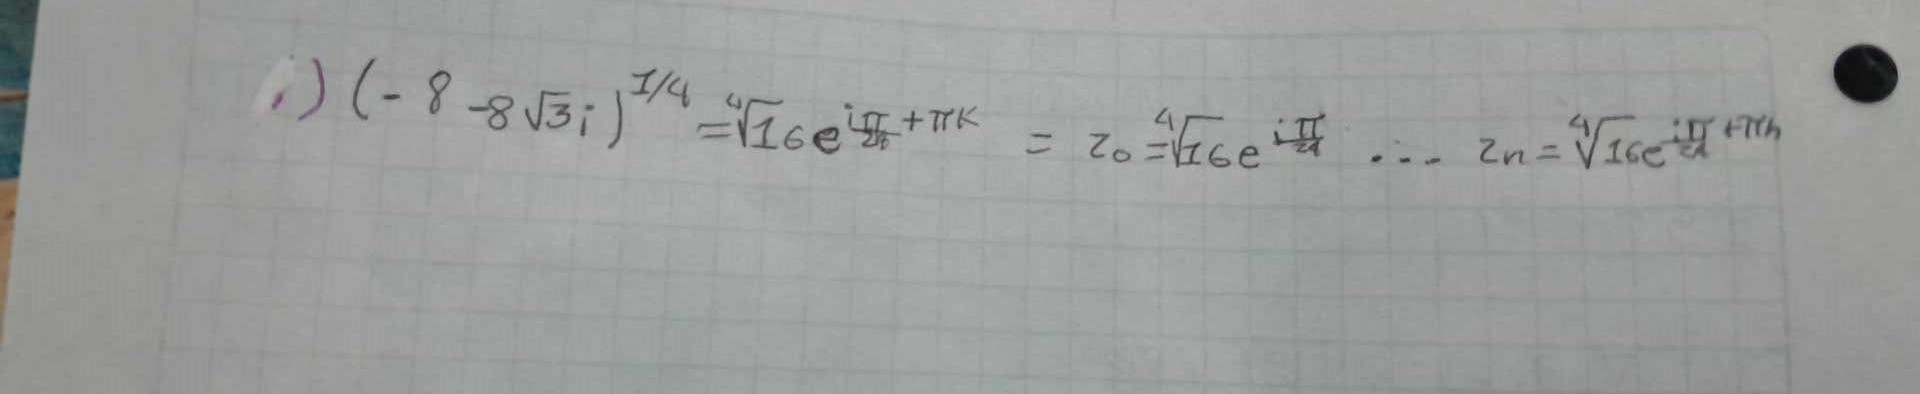 i) (-8 -8√3i)^1/4 = ⁴√16 e^iπ/24 + πK = z₀ = ⁴√16 e^iπ/24 ... zn = ⁴√16 e^iπ/24 + πn